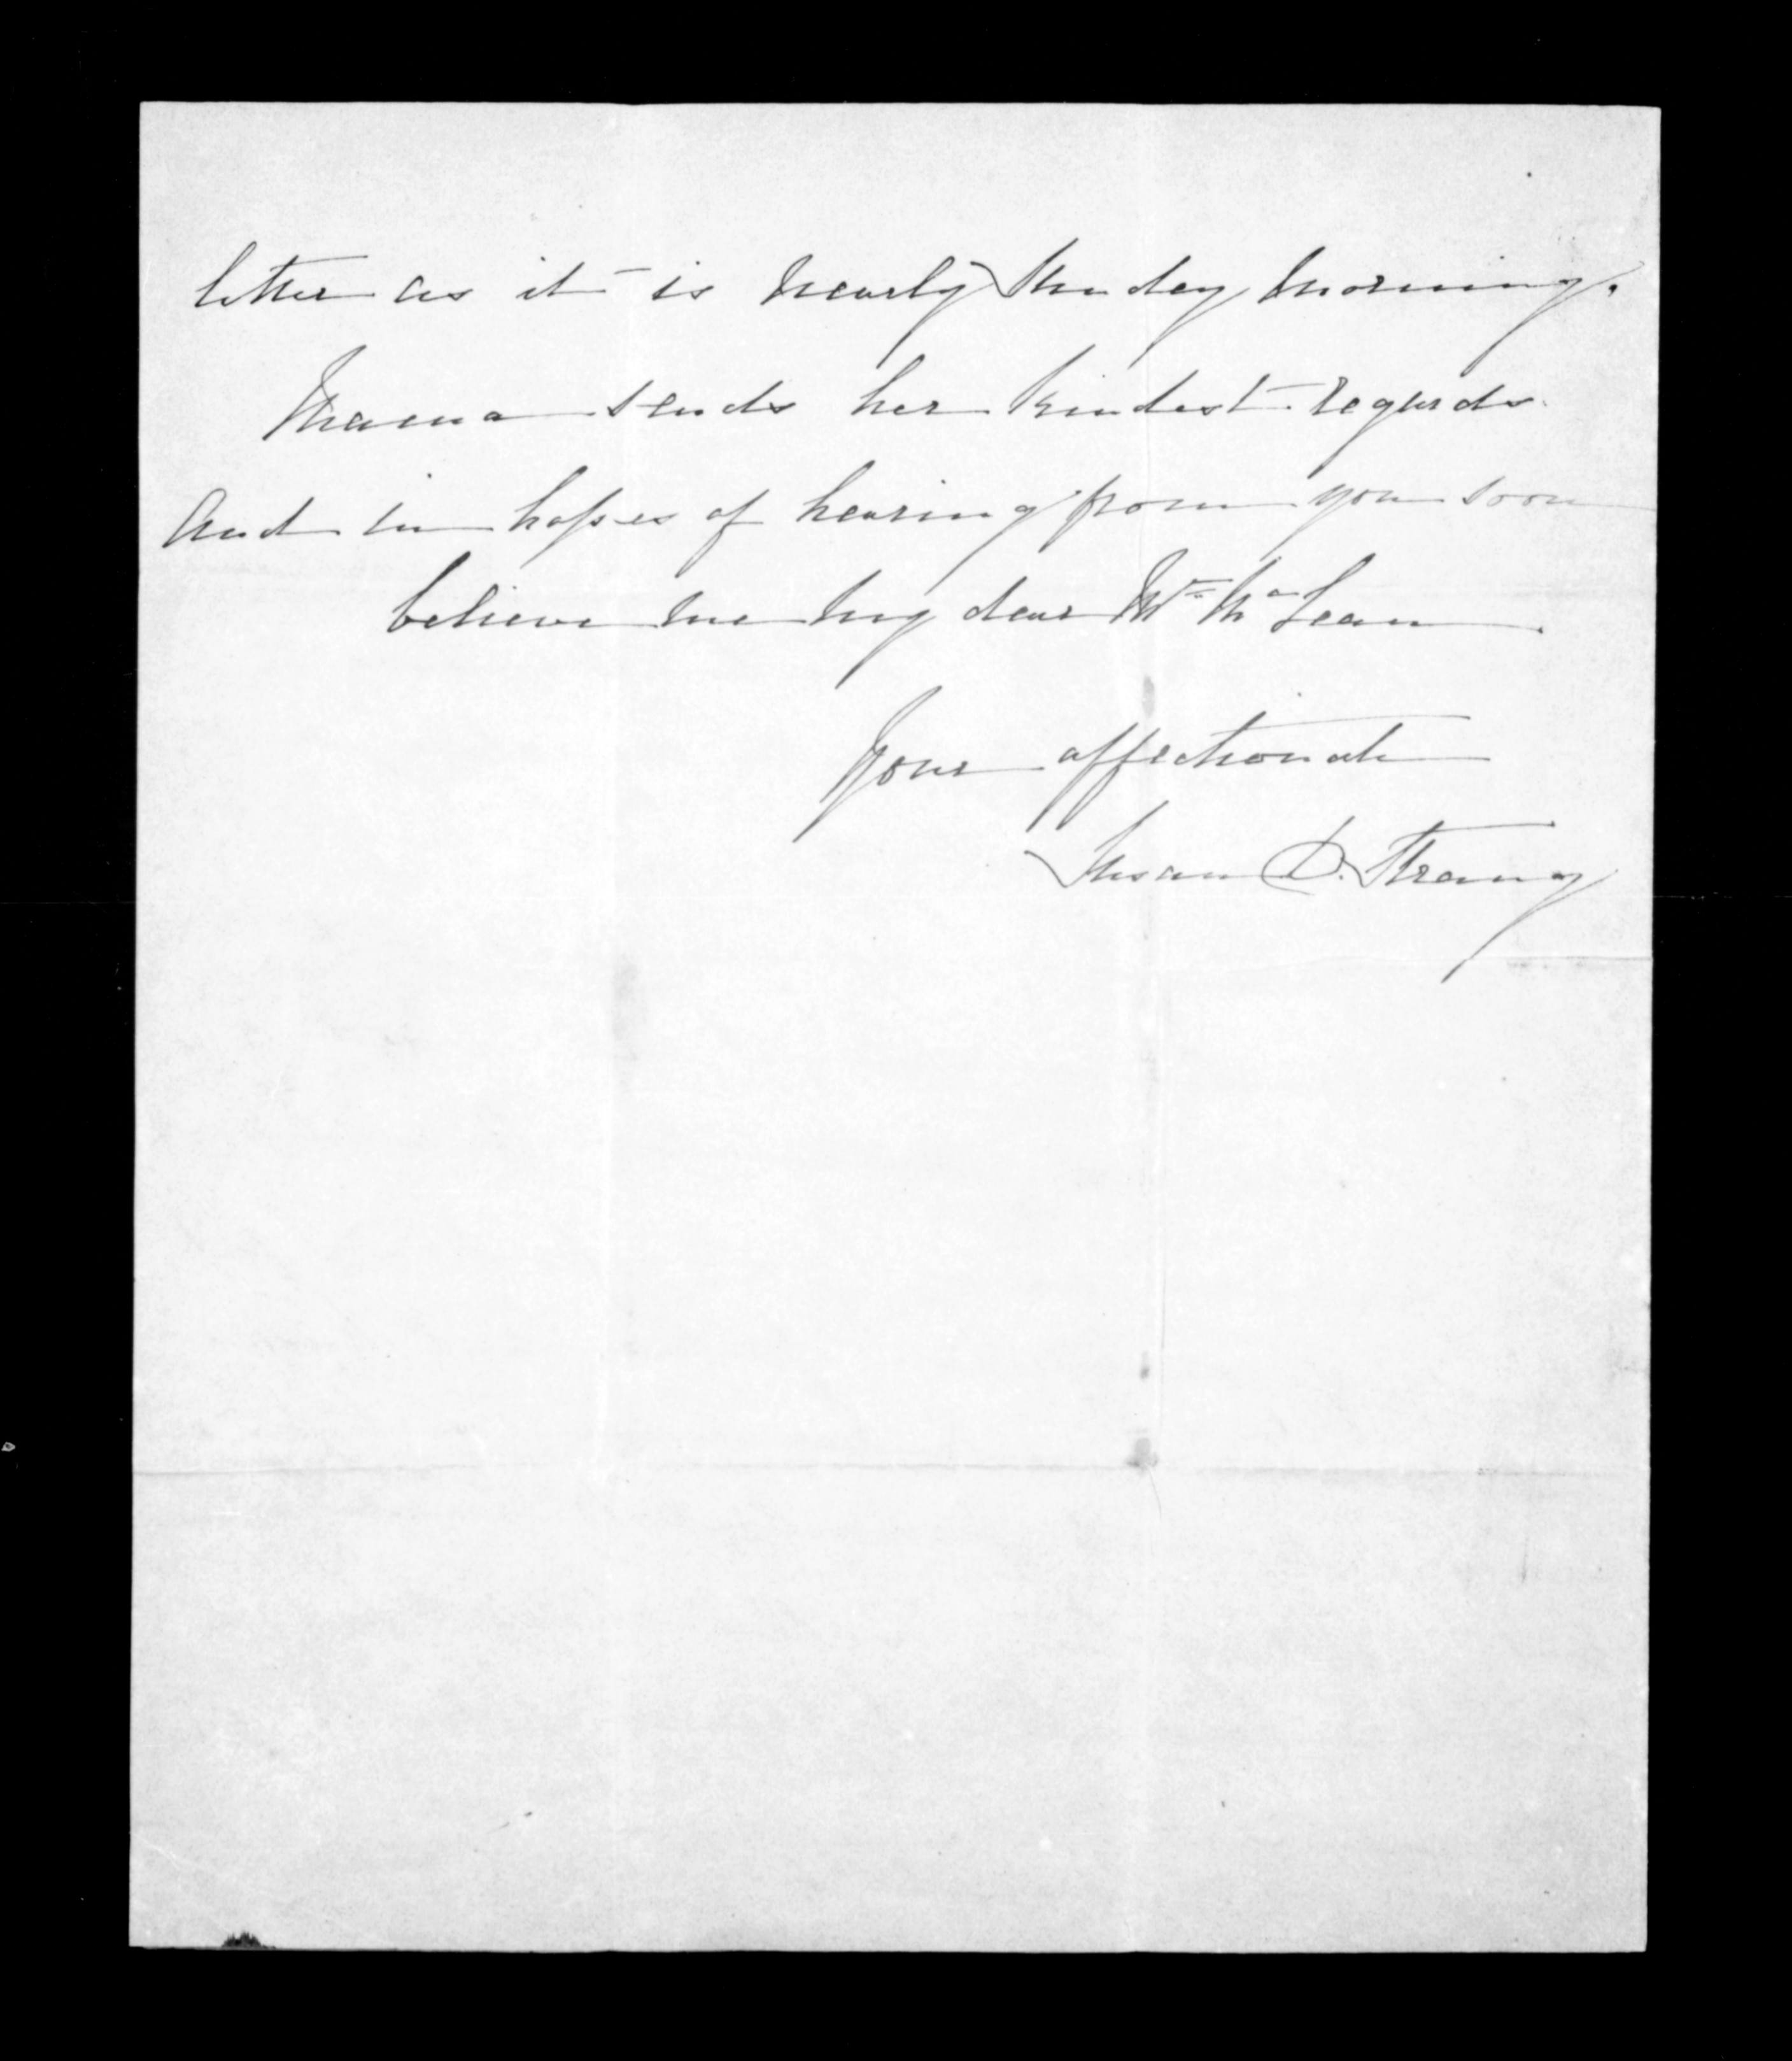 letter as it is nearly Sunday morning.
Mama sends her kindest regards
And in hopes of hearing from you soon
believe me my dear Mr McLean
Your affectionate
Susan D. Strang